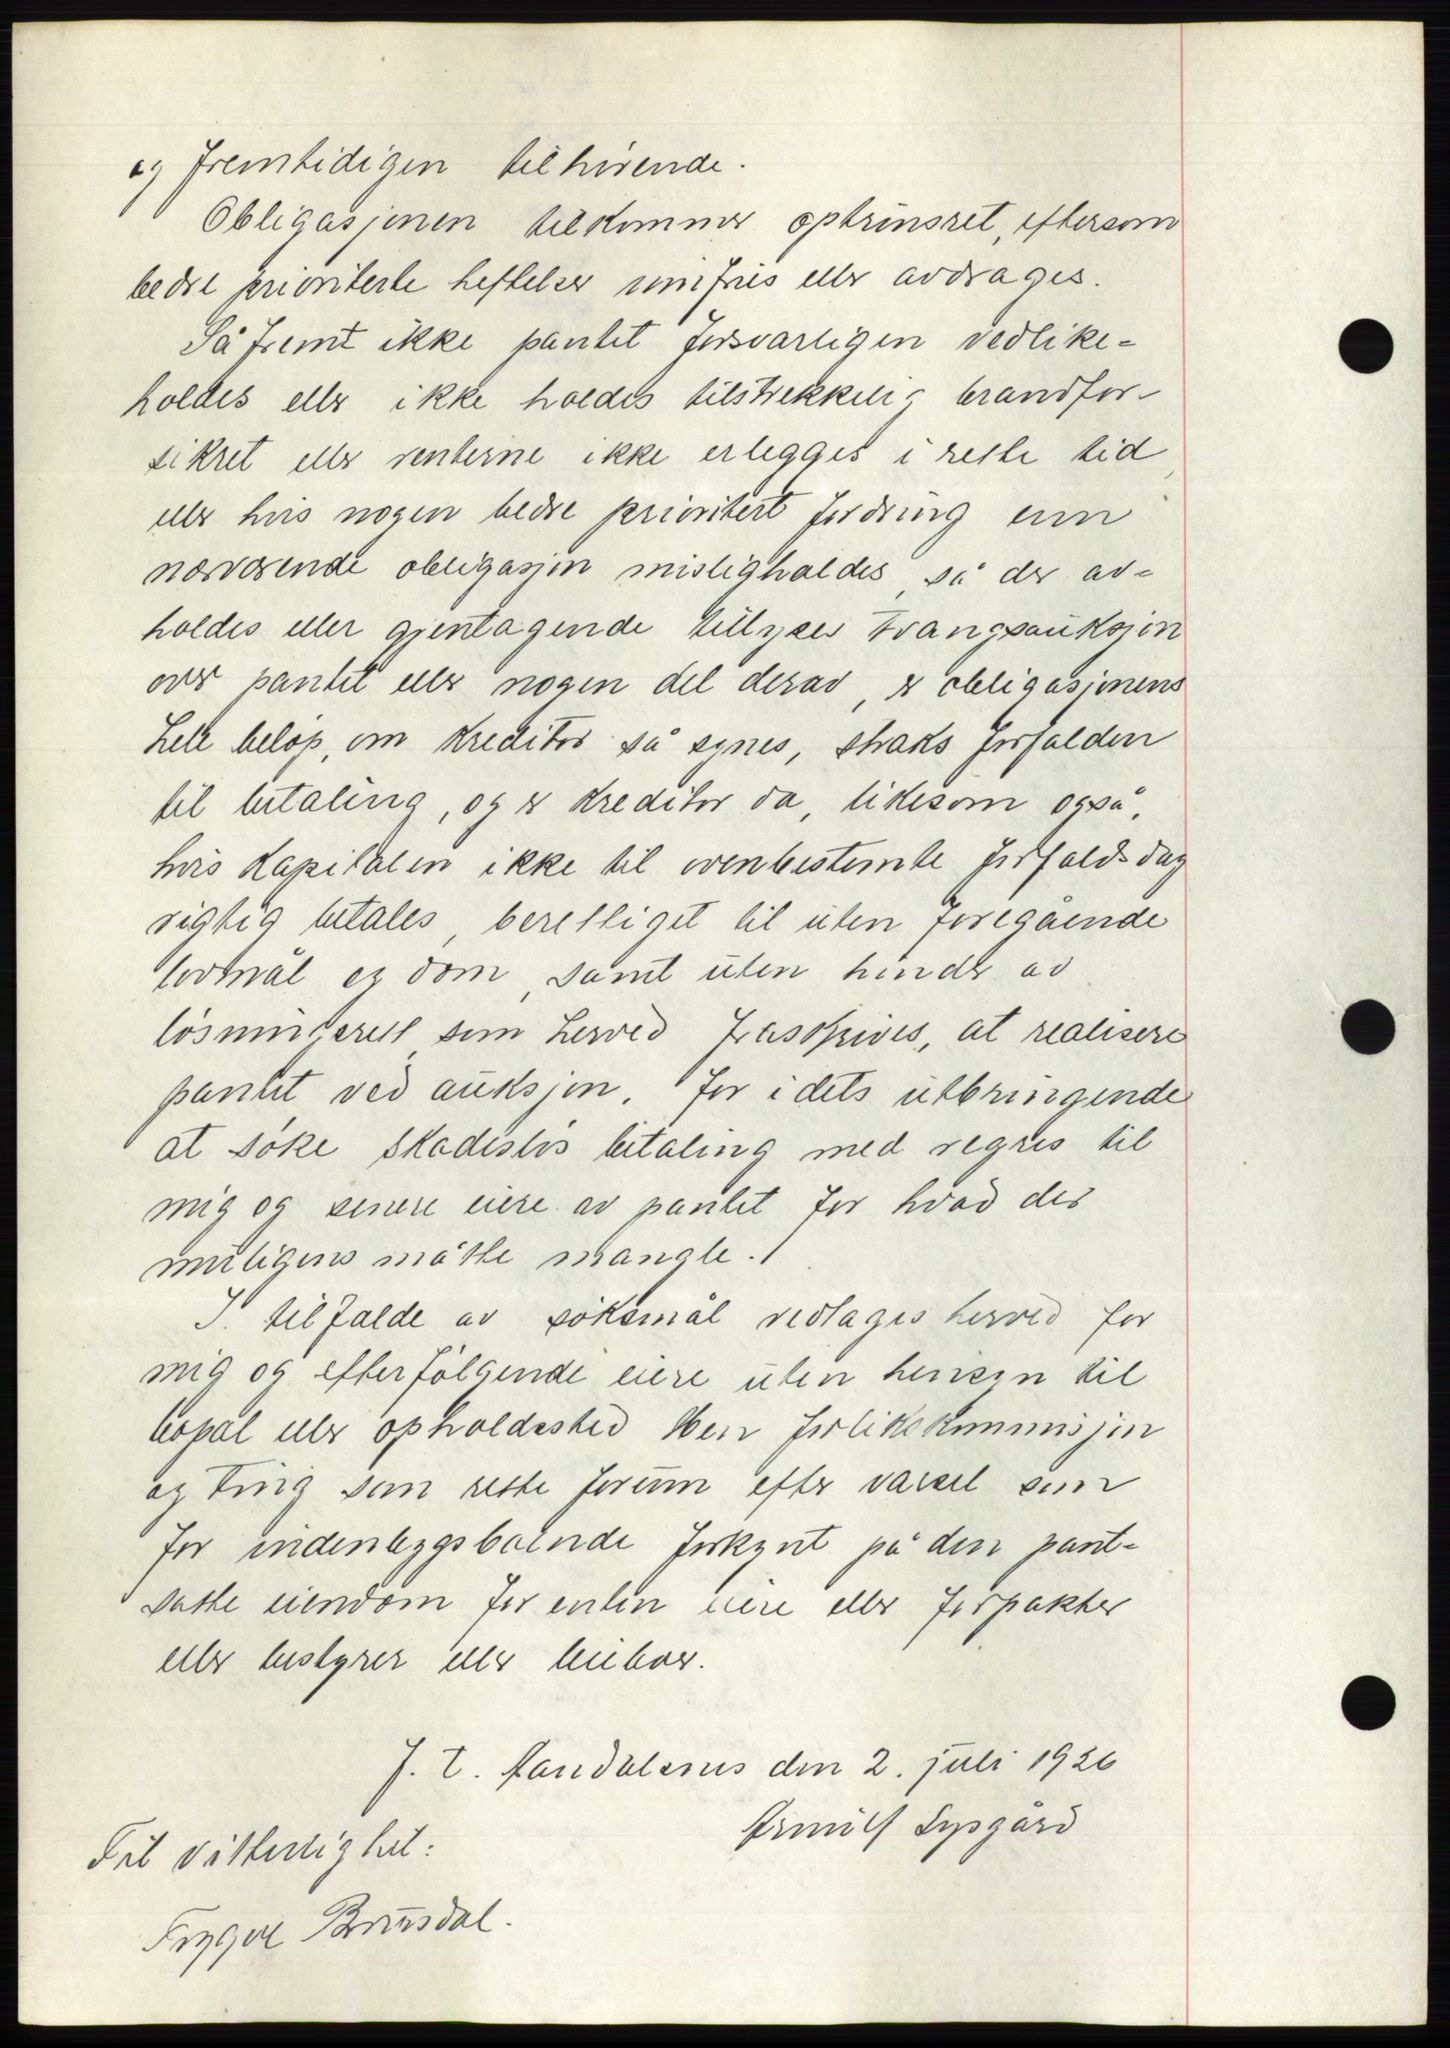 og fremtidigen tilhørende.
Obligasjonen tilkommer optrinsret, eftersom
bedre prioriterte heftelser innfries eller avdrages.
Såfremt ikke pantet forsvarligen vedlike-
holdes eller ikke holdes tilstrekkelig brandfor-
sikret eller renterne ikke erlegges i rette tid,
eller hvis nogen bedre prioritert fordring enn
nærværende obligasjon misligholdes, så der av-
holdes eller gjentagende tillyses tvangsauksjon
over pantet eller nogen del derav, er obligasjonens
hele beløp, om kreditor så synes, straks forfalden
til betaling, og er kreditor da, likesom også,
hvis kapitalen ikke til ovenbestemte forfaldsdag
rigtig betales, berettiget til uten foregående
lovmål og dom, samt uten hinder av
løsningsrett som herved fraskrives, at realisere
pantet ved auksjon. for i dets utbringende
at søke skadesløs betaling med regres til
mig og senere eiere av pantet for hvad der
muligens måtte mangle.
I tilfælde av søksmål vedtages herved for
mig og efterfølgende eiere uten hensyn til
bopæl eller opholdssted forlikskommisjon
og ting som rette forum efter varsel som
for indenbygsboende forkynt på den pant-
satte eiendom for enten eier eller forpakter
eller bestyrer eller leiboer.
J. t. Aandalsnes den 2. juli 1926
Til vitterlighet: Arnulf Lysgård
Trygve Brunsdal.